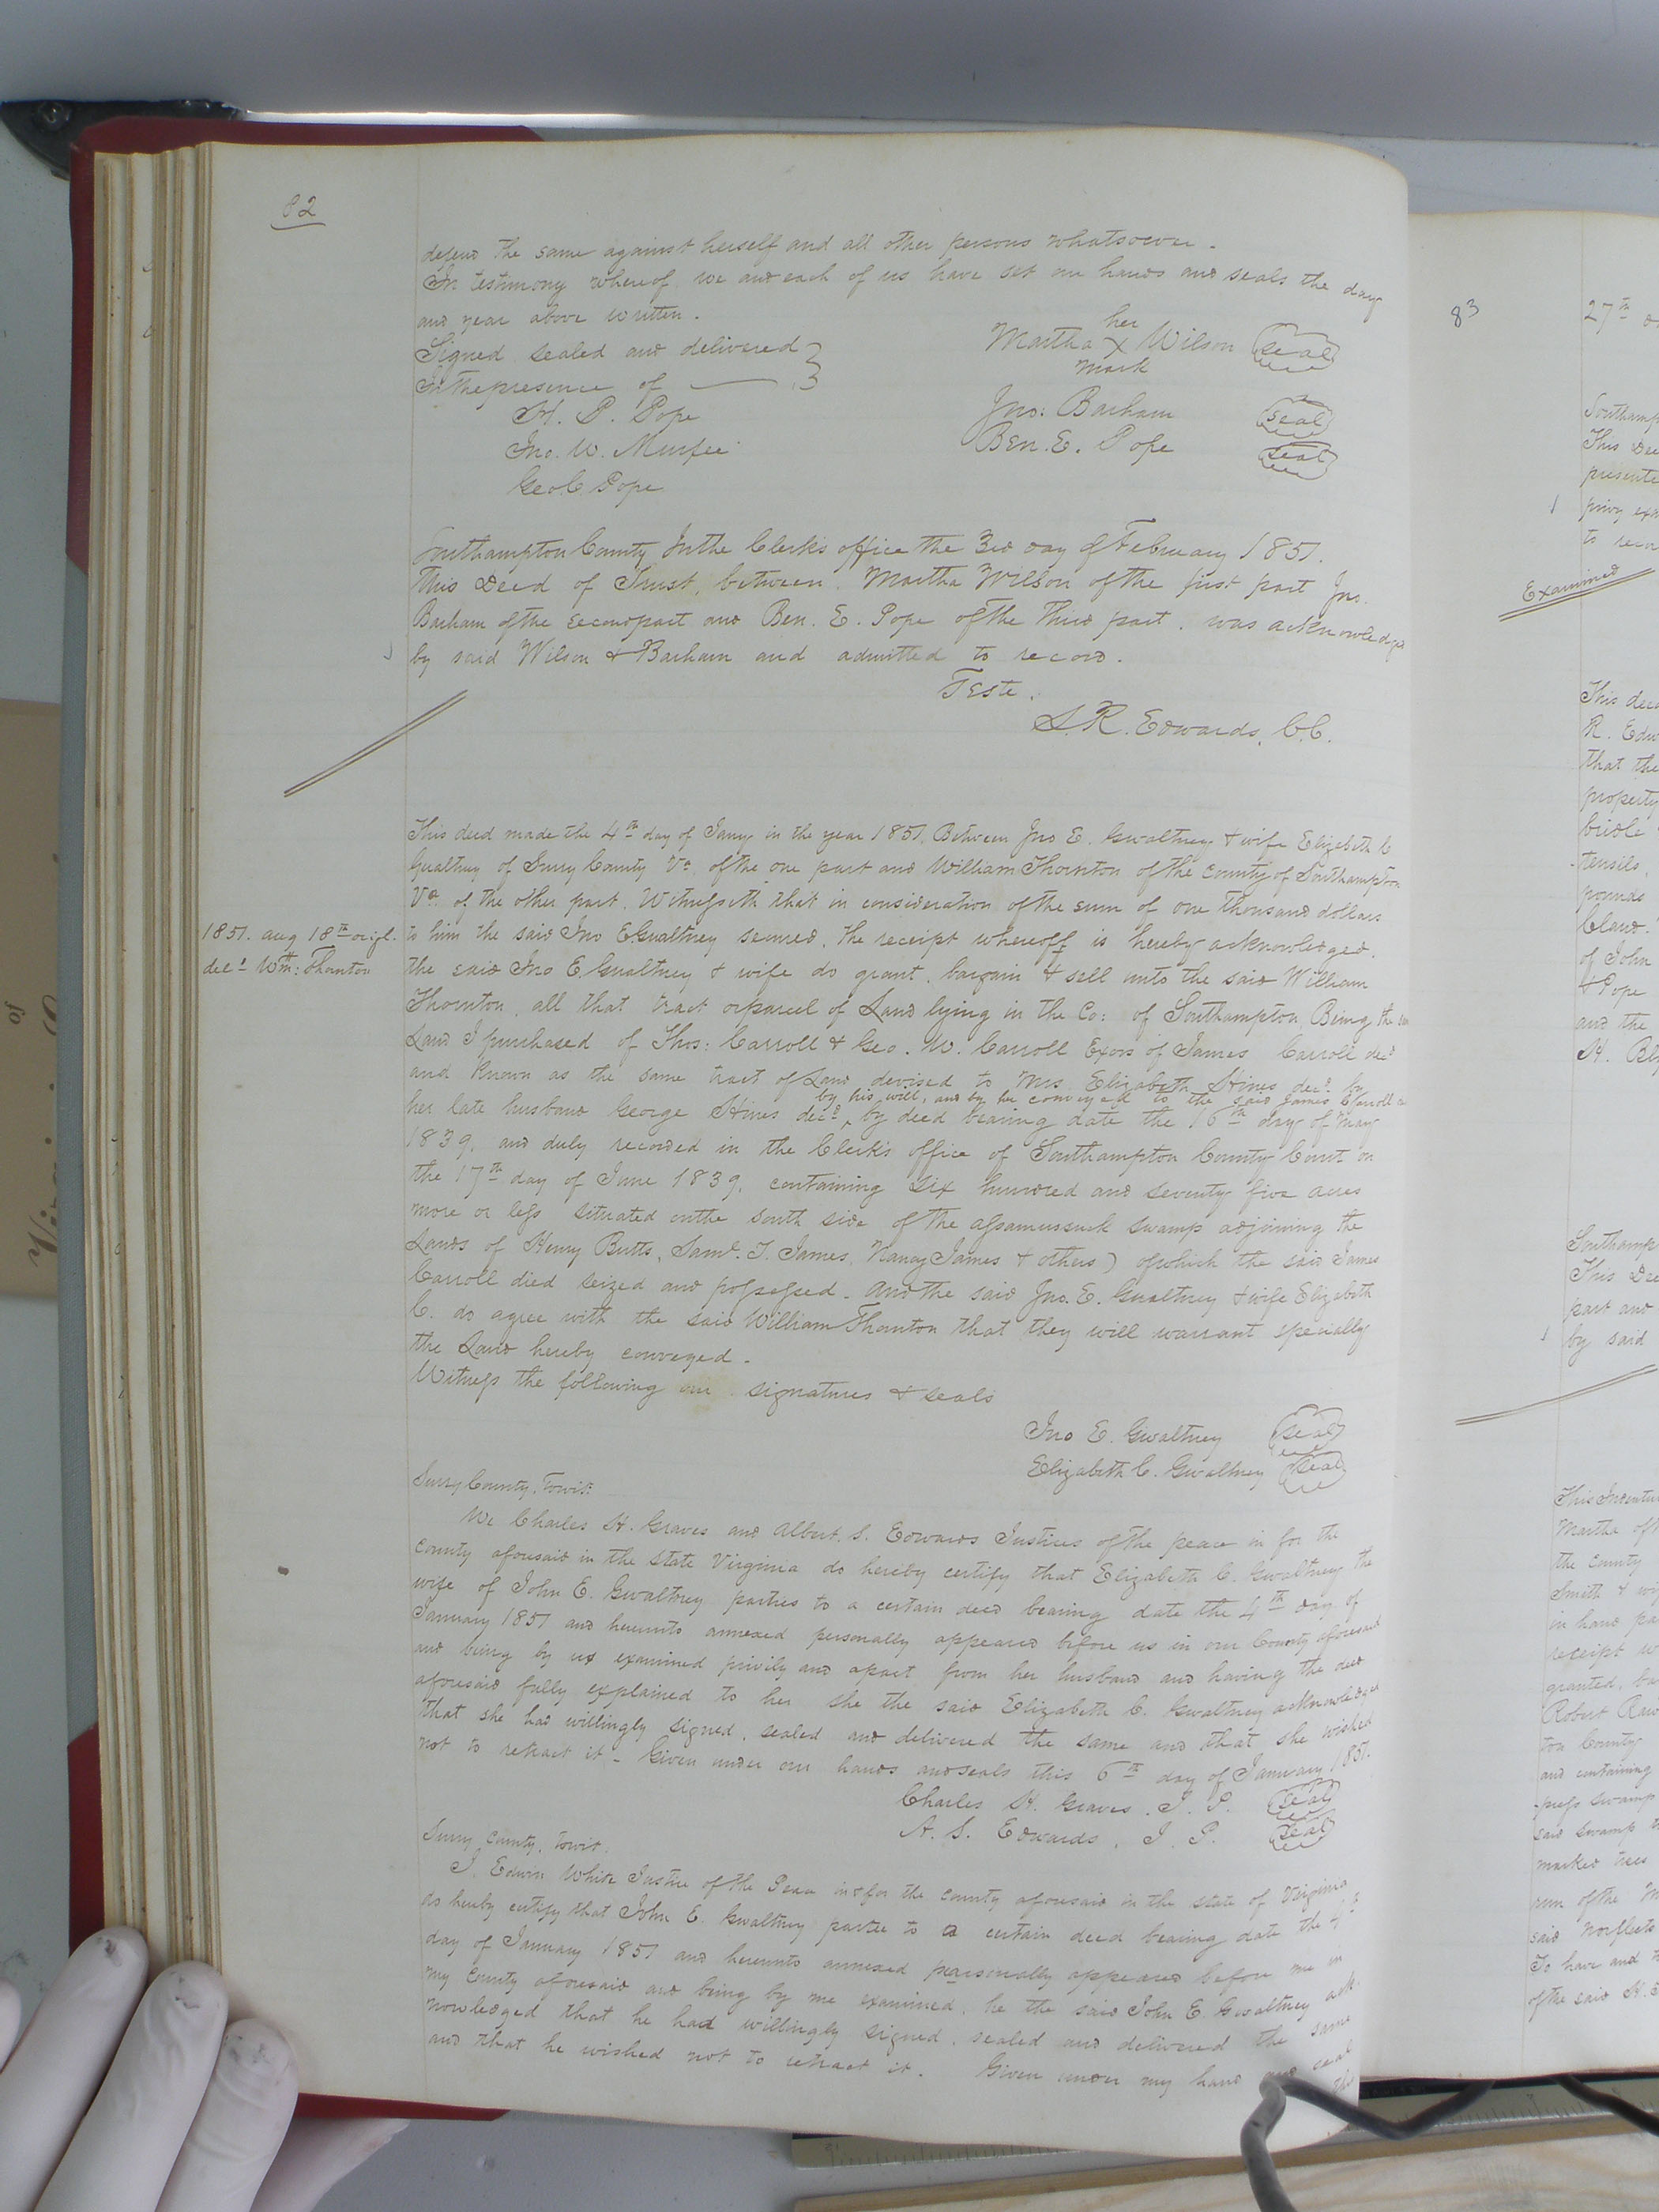 82
defend the same against herself and all other persons whatsoever.
In testimony whereof we and each of us have set our hands and seals the day
and year above written.
Signed sealed and delivered
In the presence of
her
Martha X Wilson seal
mark
H. P. Pope
Jno: Barham seal
Jno. W. Murfee
Ben. E. Pope seal
Geo C Pope
Southampton County In the Clerk's office the 3rd day of February 1851.
This Deed of Trust, between Martha Wilson of the first part Jno.
Barham of the second part and Ben. E. Pope of the third part. was acknowledged
by said Wilson & Barham and admitted to record.
Teste.
L.R. Edwards, C.C.
This deed made the 4th day of Jany in the year 1851. Between Jno E. Gwaltney & wife Elizabeth C
Gwaltney of Surry County Va. of the one part and William Thornton of the County of Southampton
Va. of the other part. Witnesseth that in consideration of the sum of one thousand dollars
1851. aug 18th origl.
decd Wm: Thonton
to him the said Jno E Gwaltney secured, the receipt whereoff is hereby acknowledged.
the said Jno E. Gwaltney & wife do grant, bargain & sell unto the said William
Thornton, all that tract or parcel of Land lying in the Co: of Southampton Being the
Land I purchased of Thos: Carroll & Geo. W. Carroll Exors of James Carroll decd
and known as the same tract of Land devised to Mrs Elizabeth Hines decd by
by his will, and by her conveyed to the said James Carroll
her late husband George Hines decd, by deed bearing date the 16th day of May
1839. and duly recorded in the Clerk's office of Southampton County Court on
the 17th day of June 1839. containing six hundred and seventy five acres
more or less situated on the south side of the assamussuck swamp adjoining the
Lands of Henry Butts, Saml. T. James, Nancy James & others) of which the said James
Carroll died seized and possessed. And the said Jno. E. Gwaltney & wife Elizabeth
C. do agree with the said William Thonton that they will warrant specially
the Land hereby conveyed.
Witness the following our signatures & seals
Jno E. Gwaltney seal
Elizabeth C. Gwaltney seal
Surry County, Towit:
We Charles H. Graves and Albert. S. Edwards Justices of the peace in for the
County aforesaid in the state Virginia do hereby certify that Elizabeth C. Gwaltney the
wife of John E. Gwaltney parties to a certain deed bearing date the 4th day of
January 1851 and hereunto annexed personally appeared before us in our County aforesaid
and being by us examined privily and apart from her husband and having the deed
aforesaid fully explained to her she the said Elizabeth C. Gwaltney acknowledged
that she had willingly signed, sealed and delivered the same and that she wished
not to retract it - Given under our hands and seals this 6th day of January 1851.
Charles H. Graves. J. P. seal
A. S. Edwards, J. P. seal
Surry County, towit,
I. Edwin White Justice of the Peace in & for the County aforesaid in the state of Virginia
do hereby certify that John E. Gwaltney partee to a certain deed bearing date the 4th
day of January 1851 and hereunto annexed personally appeared before me in
my County aforesaid and being by me examined. he the said John E. Gwaltney ack-
nowledged that he had willingly signed, sealed and delivered the same
and that he wished not to retract it. Given under my hand and seal
this
83
27th
Southamp
This Dee
presente
privy exa
to recor
Examined
This deed
R. Edw
that the
property
bridle
tensils,
pounds
Cland.
of John
& Pope
and the
H. Bl
Southamp
This Dee
part and
by said
This Indentu
Martha of
the County
Smith & wi
in hand pa
receipt w
granted, ba
Robert Raw
ton County
and containing
-press swamp
said swamp
marked trees
run of the m
said Norfleets
To have and
of the said H.